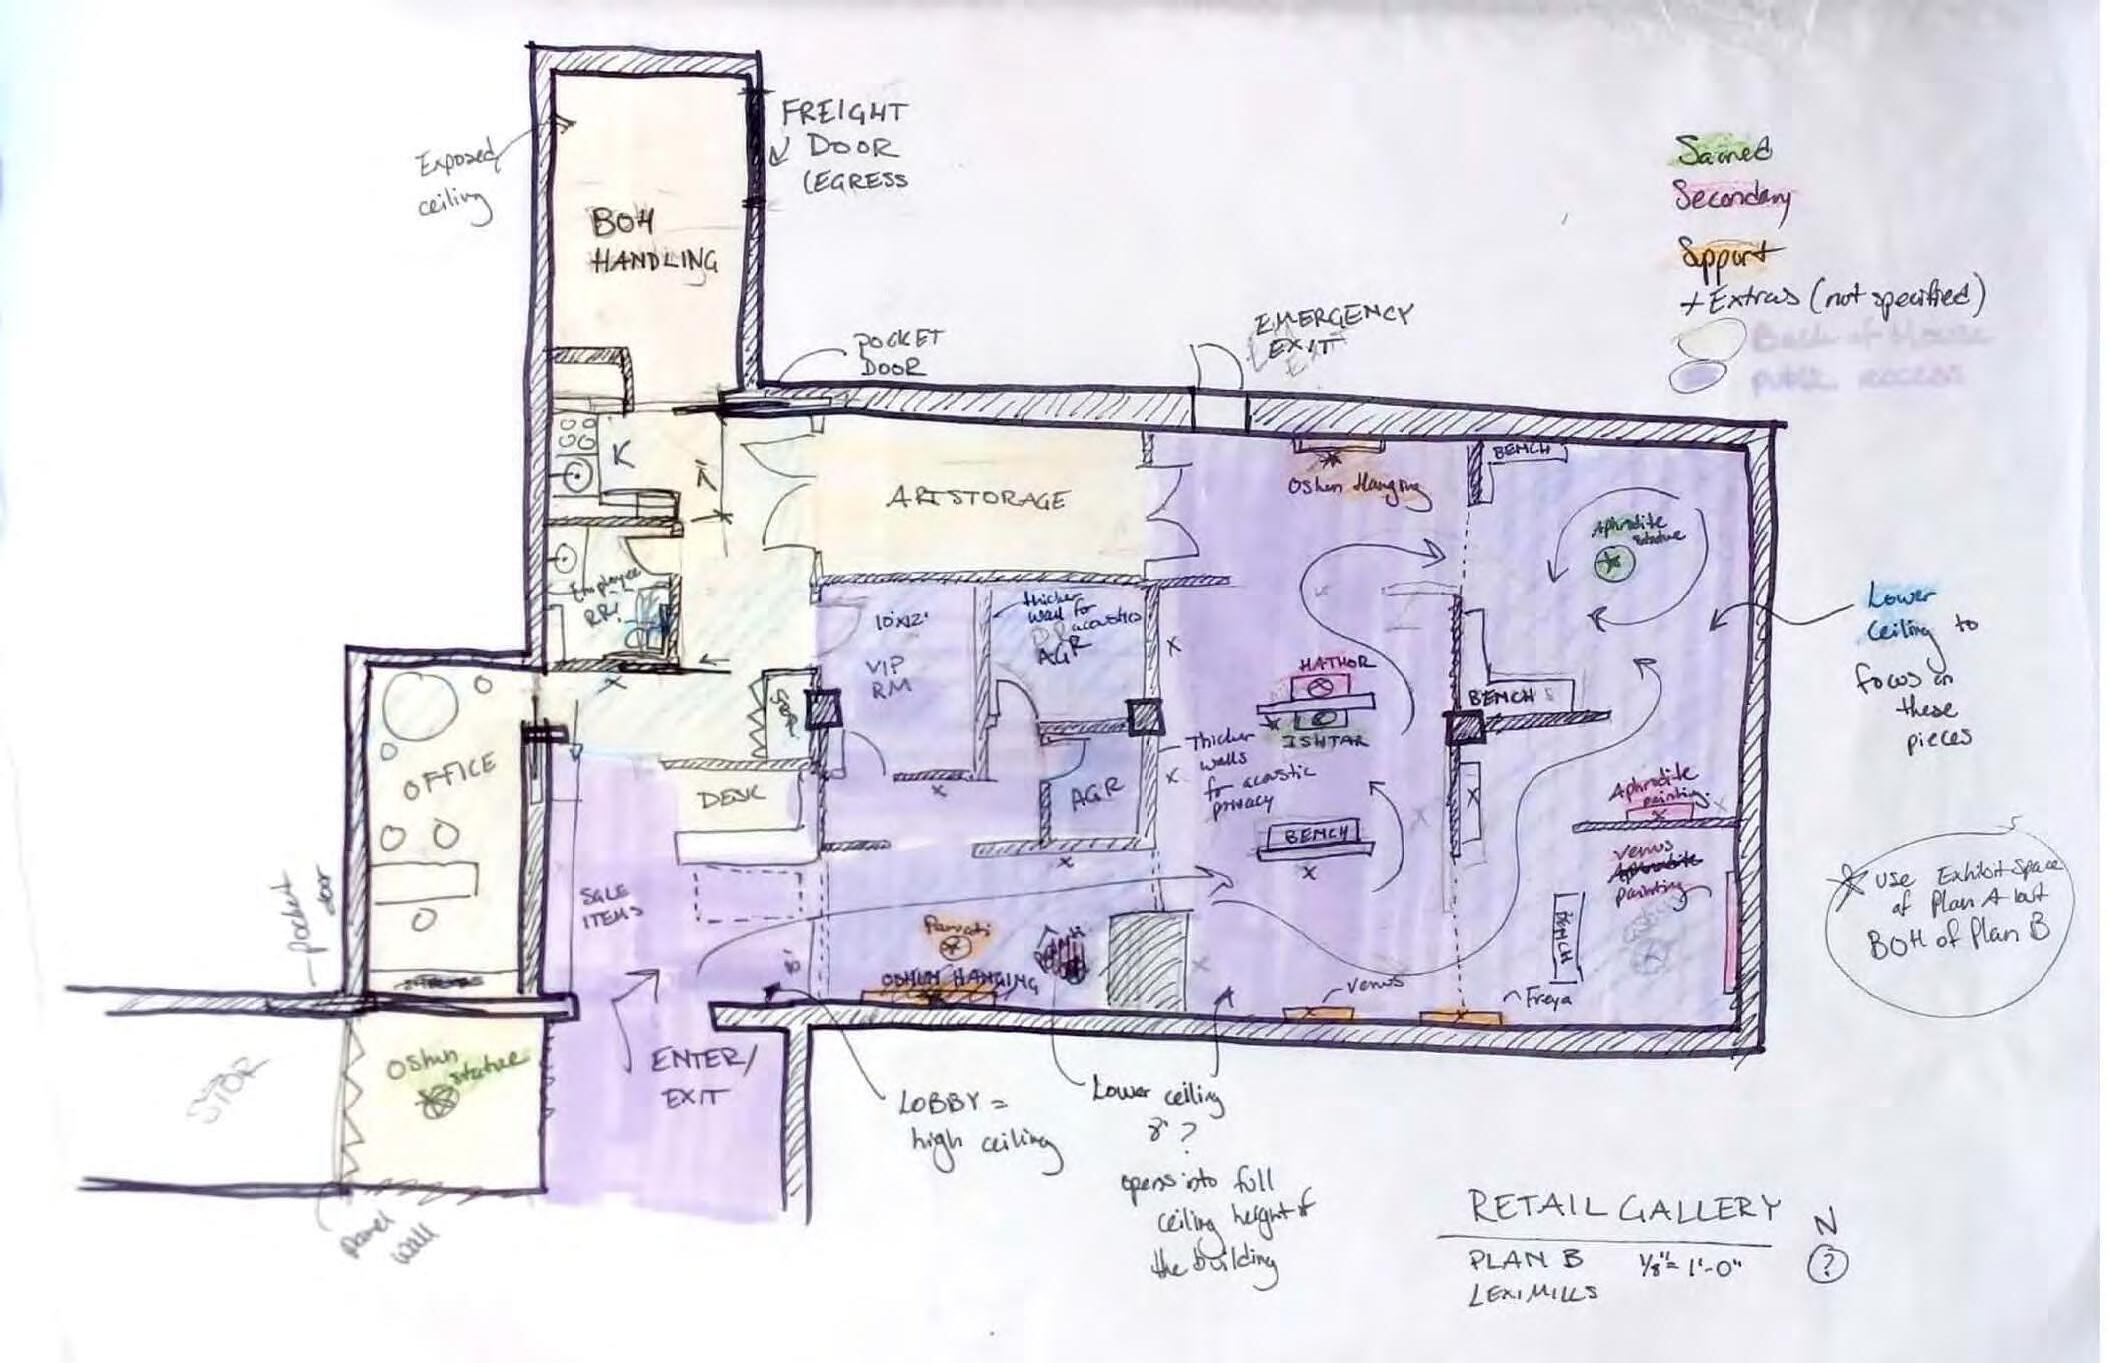 FREIGHT
DOOR
(EGRESS
Exposed
ceiling
BOH
HANDLING
Sacred
Secondary
Support
+ Extras (not specified)
Back of House
public access
POCKET
DOOR
EMERGENCY
EXIT
K
ART STORAGE
Oshun Hanging
BENCH
Aphrodite
statue
Employee
RR.
10'x12'
VIP
RM
thicker
wall for
acoustics
AGR
HATHOR
ISHTAR
BENCH
Lower
ceiling to
focus on
these
pieces
OFFICE
DESK
AGR
Thicker
walls
for acoustic
privacy
BENCH
Aphrodite
painting.
Venus
Aphrodite
painting
BENCH
pocket
door
SALE
ITEMS
Parvati
OSHUN HANGING
Venus
Freya
* USE Exhibit Space
of Plan A but
BOH of Plan B
STOR
Oshun
statue
ENTER/
EXIT
panel
wall
LOBBY =
high ceiling
Lower ceiling
8' ?
opens into full
ceiling height of
the building
RETAIL GALLERY
PLAN B 1/8" = 1'-0"
LEXI MILLS
N
?